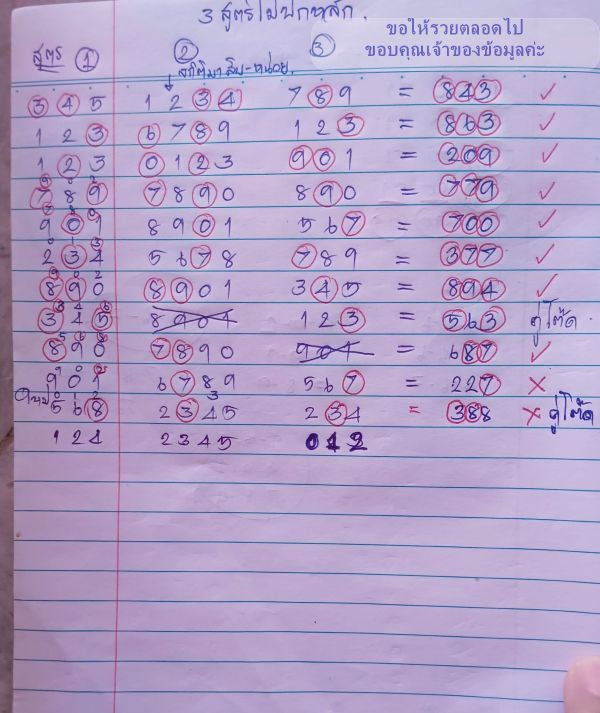 3 สูตรไม่ปักหลัก.
ขอให้รวยตลอดไป
ขอบคุณเจ้าของข้อมูลค่ะ
สูตร 1 2 3
สถิติมาสิบ-หน่วย.
3 4 5 1 2 3 4 7 8 9 = 843 ✓
1 2 3 6 7 8 9 1 2 3 = 863 ✓
1 2 3 0 1 2 3 9 0 1 = 209 ✓
7 8 9 7 8 9 0 8 9 0 = 779 ✓
9 0 9 8 9 0 1 5 6 7 = 700 ✓
2 3 4 5 6 7 8 7 8 9 = 377 ✓
8 9 0 8 9 0 1 3 4 5 = 894 ✓
3 4 5 8 9 0 1 1 2 3 = 563 คู่โต๊ด
8 9 0 7 8 9 0 9 0 1 = 687 ✓
9 0 1 6 7 8 9 5 6 7 = 227 ×
5 6 8 2 3 4 5 2 3 4 = 388 × คู่โต๊ด
1 2 4 2 3 4 5 0 1 2